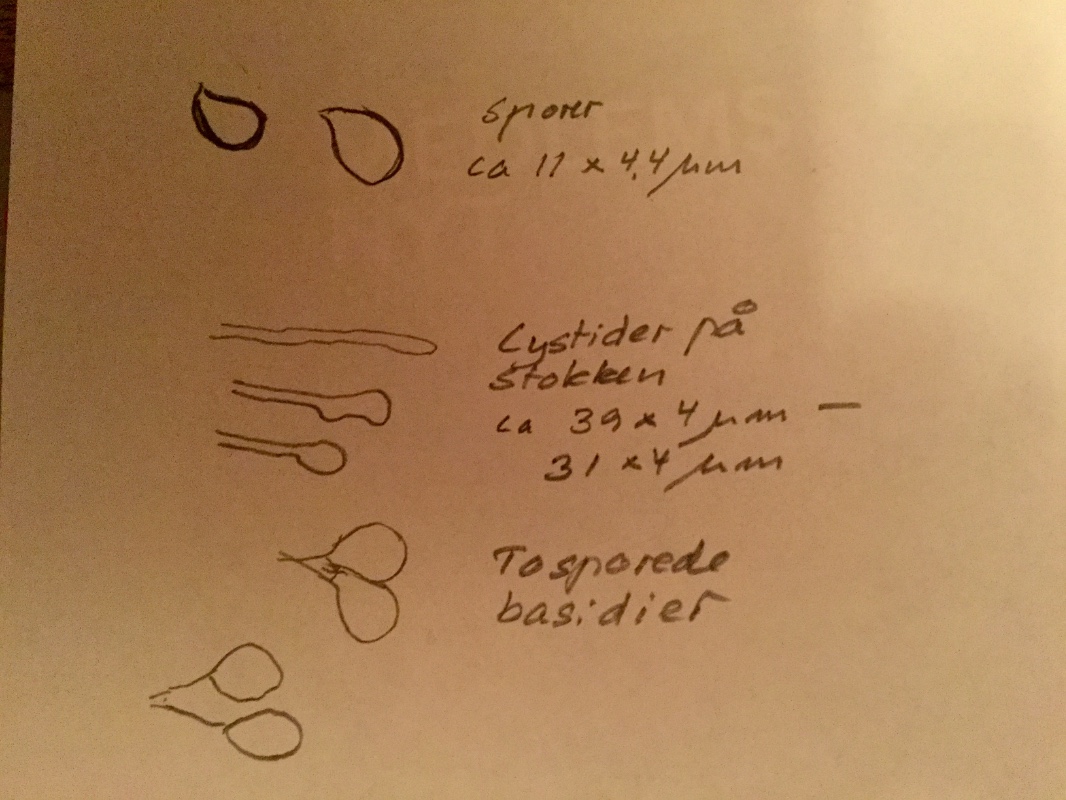 sporer
ca 11 x 4,4 µm
Cystider på
stokken
ca 39 x 4 µm —
31 x 4 µm
Tosporede
basidier